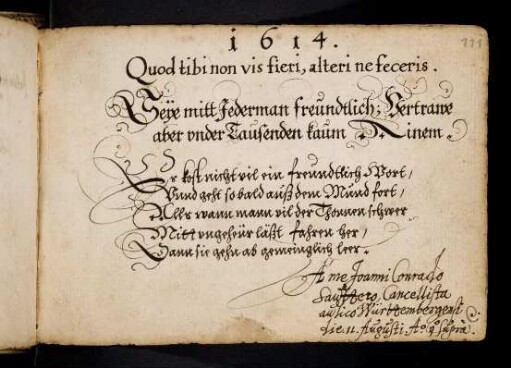 1614.
Quod tibi non vis fieri, alteri ne feceris.
Seÿe mitt Jederman freundtlich; Vertrawe
aber vnder Tausenden kaum Ainem.
Er kost nicht vil ein freundtlich Wort,
Vnnd geht so bald auß dem Mund fort,
Aller wann mann vil der Thonnen schwer
Mitt vngeheür läßt fahren her,
Dann sie gehn ab gemeinglich leer.
A me Joanni Conrado
Cancellista
aulico Württembergensi
die 11. Augusti Aō. q̃ suprà.